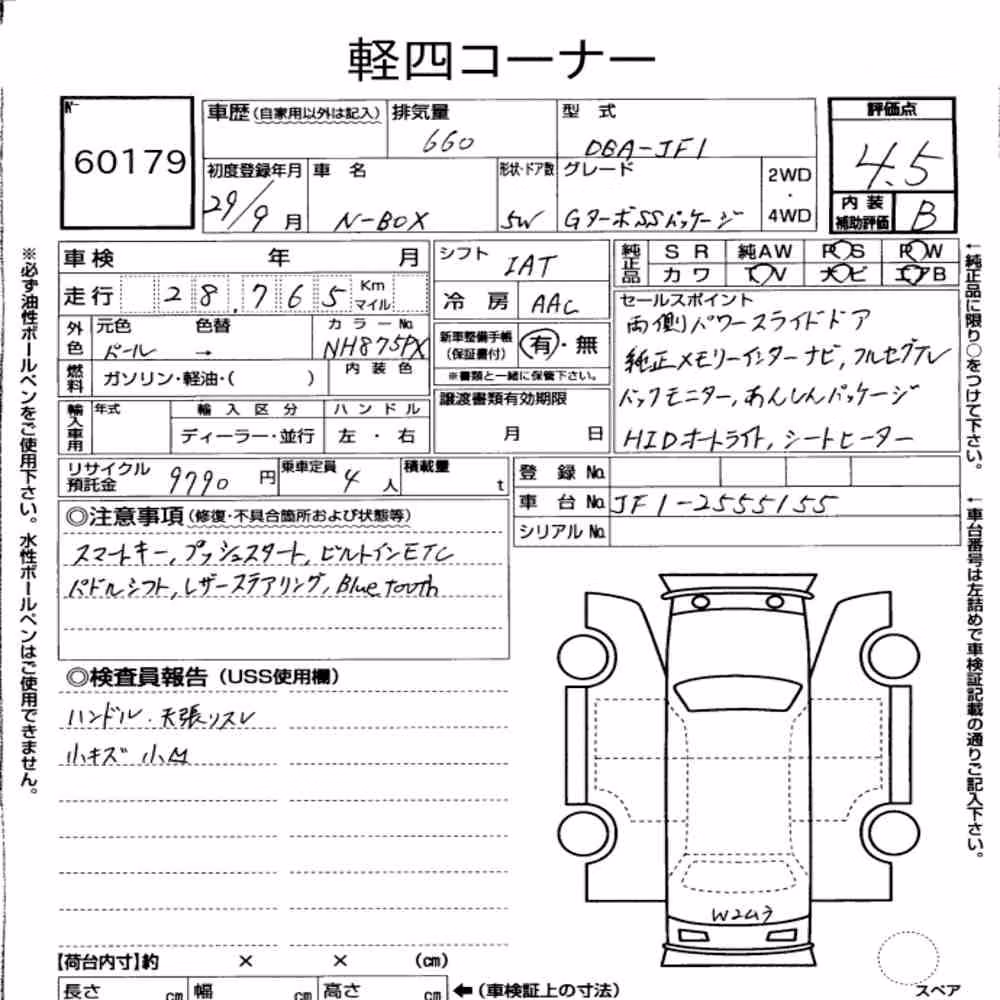 軽四コーナー
No
60179
車歴（自家用以外は記入）
排気量
660
型 式
DBA-JF1
評価点
4.5
初度登録年月
29/9 月
車 名
N-BOX
形状・ドア数
5W
グレード
GターボSSパッケージ
2WD
・
4WD
内装
補助評価
B
車検 年 月
走行 28,765 Km マイル
シフト
IAT
冷 房
AAC
純正品
SR 純AW PS PW
カワ TV ナビ エアB
外色
元色 色替
パール →
カラーNo.
NH875PX
内装色
燃料
ガソリン・軽油・( )
新車整備手帳
(保証書付)
有・無
※書類と一緒に保管下さい。
セールスポイント
両側パワースライドドア
純正メモリーインターナビ,フルセグTV
バックモニター,あんしんパッケージ
HIDオートライト,シートヒーター
輸入車用
年式
輸入区分
ディーラー・並行
ハンドル
左・右
譲渡書類有効期限
月 日
リサイクル
預託金
9790 円
乗車定員
4 人
積載量
t
登 録 No.
車 台 No. JF1-2555155
シリアル No.
◎注意事項（修復・不具合箇所および状態等）
スマートキー,プッシュスタート,ビルトインETC
パドルシフト,レザーステアリング,Bluetooth
◎検査員報告（USS使用欄）
ハンドル・天張リスレ
小キズ 小凹
W2ムラ
スペア
【荷台内寸】約 × × (cm)
長さ cm 幅 cm 高さ cm ←（車検証上の寸法）
※必ず油性ボールペンをご使用下さい。水性ボールペンはご使用できません。
←純正品に限り○をつけて下さい。
←車台番号は左詰めで車検証記載の通りご記入下さい。